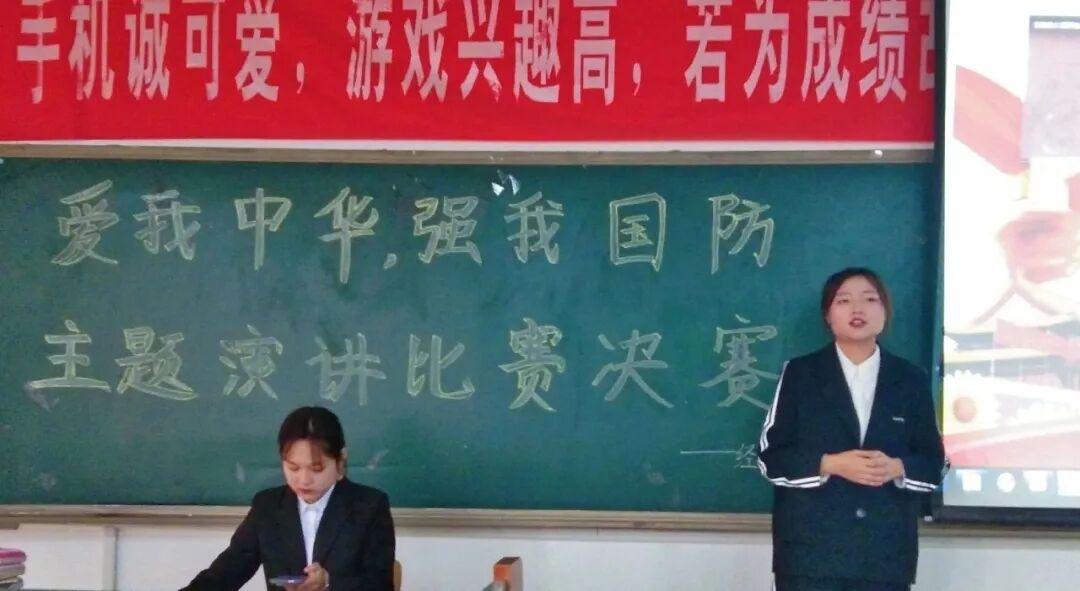 手机诚可爱，游戏兴趣高，若为成绩
爱我中华,强我国防
主题演讲比赛决赛